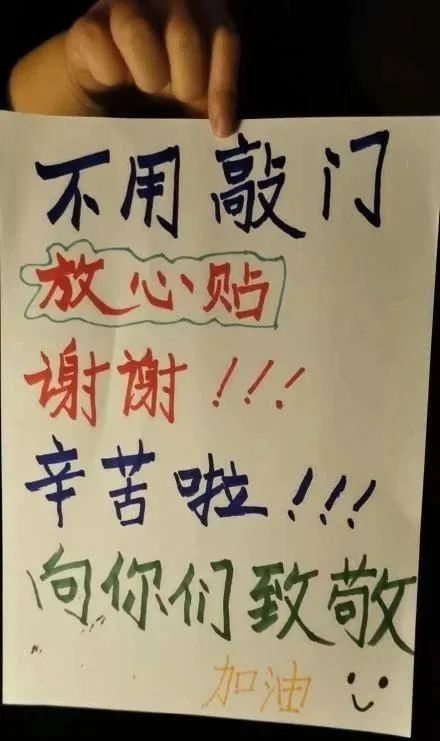 不用敲门
放心贴
谢谢!!!
辛苦啦!!!
向你们致敬
加油